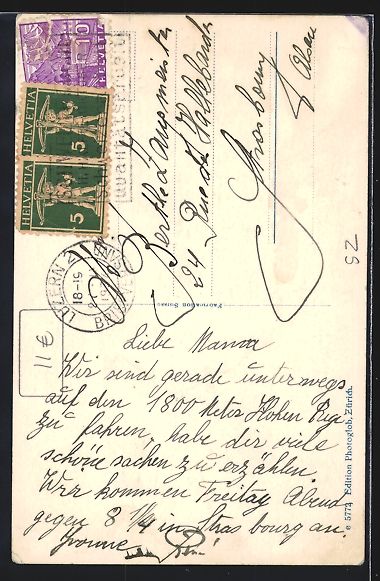 HELVETIA
10
HELVETIA
5
HELVETIA
5
LUZERN 2
18-19
Berthe
24 Rue de
Strasbourg
Elsass
25
11 €
Fabrication Suisse
Liebe Mama
Wir sind gerade unterwegs
auf den 1800 Meter Hohen Rigi
zu fahren, habe dir viele
schöne sachen zu erzählen
Wir kommen Freitag Abend
gegen 8 1/4 in Strasbourg an.
Yvonne
5772 Edition Photoglob, Zürich.